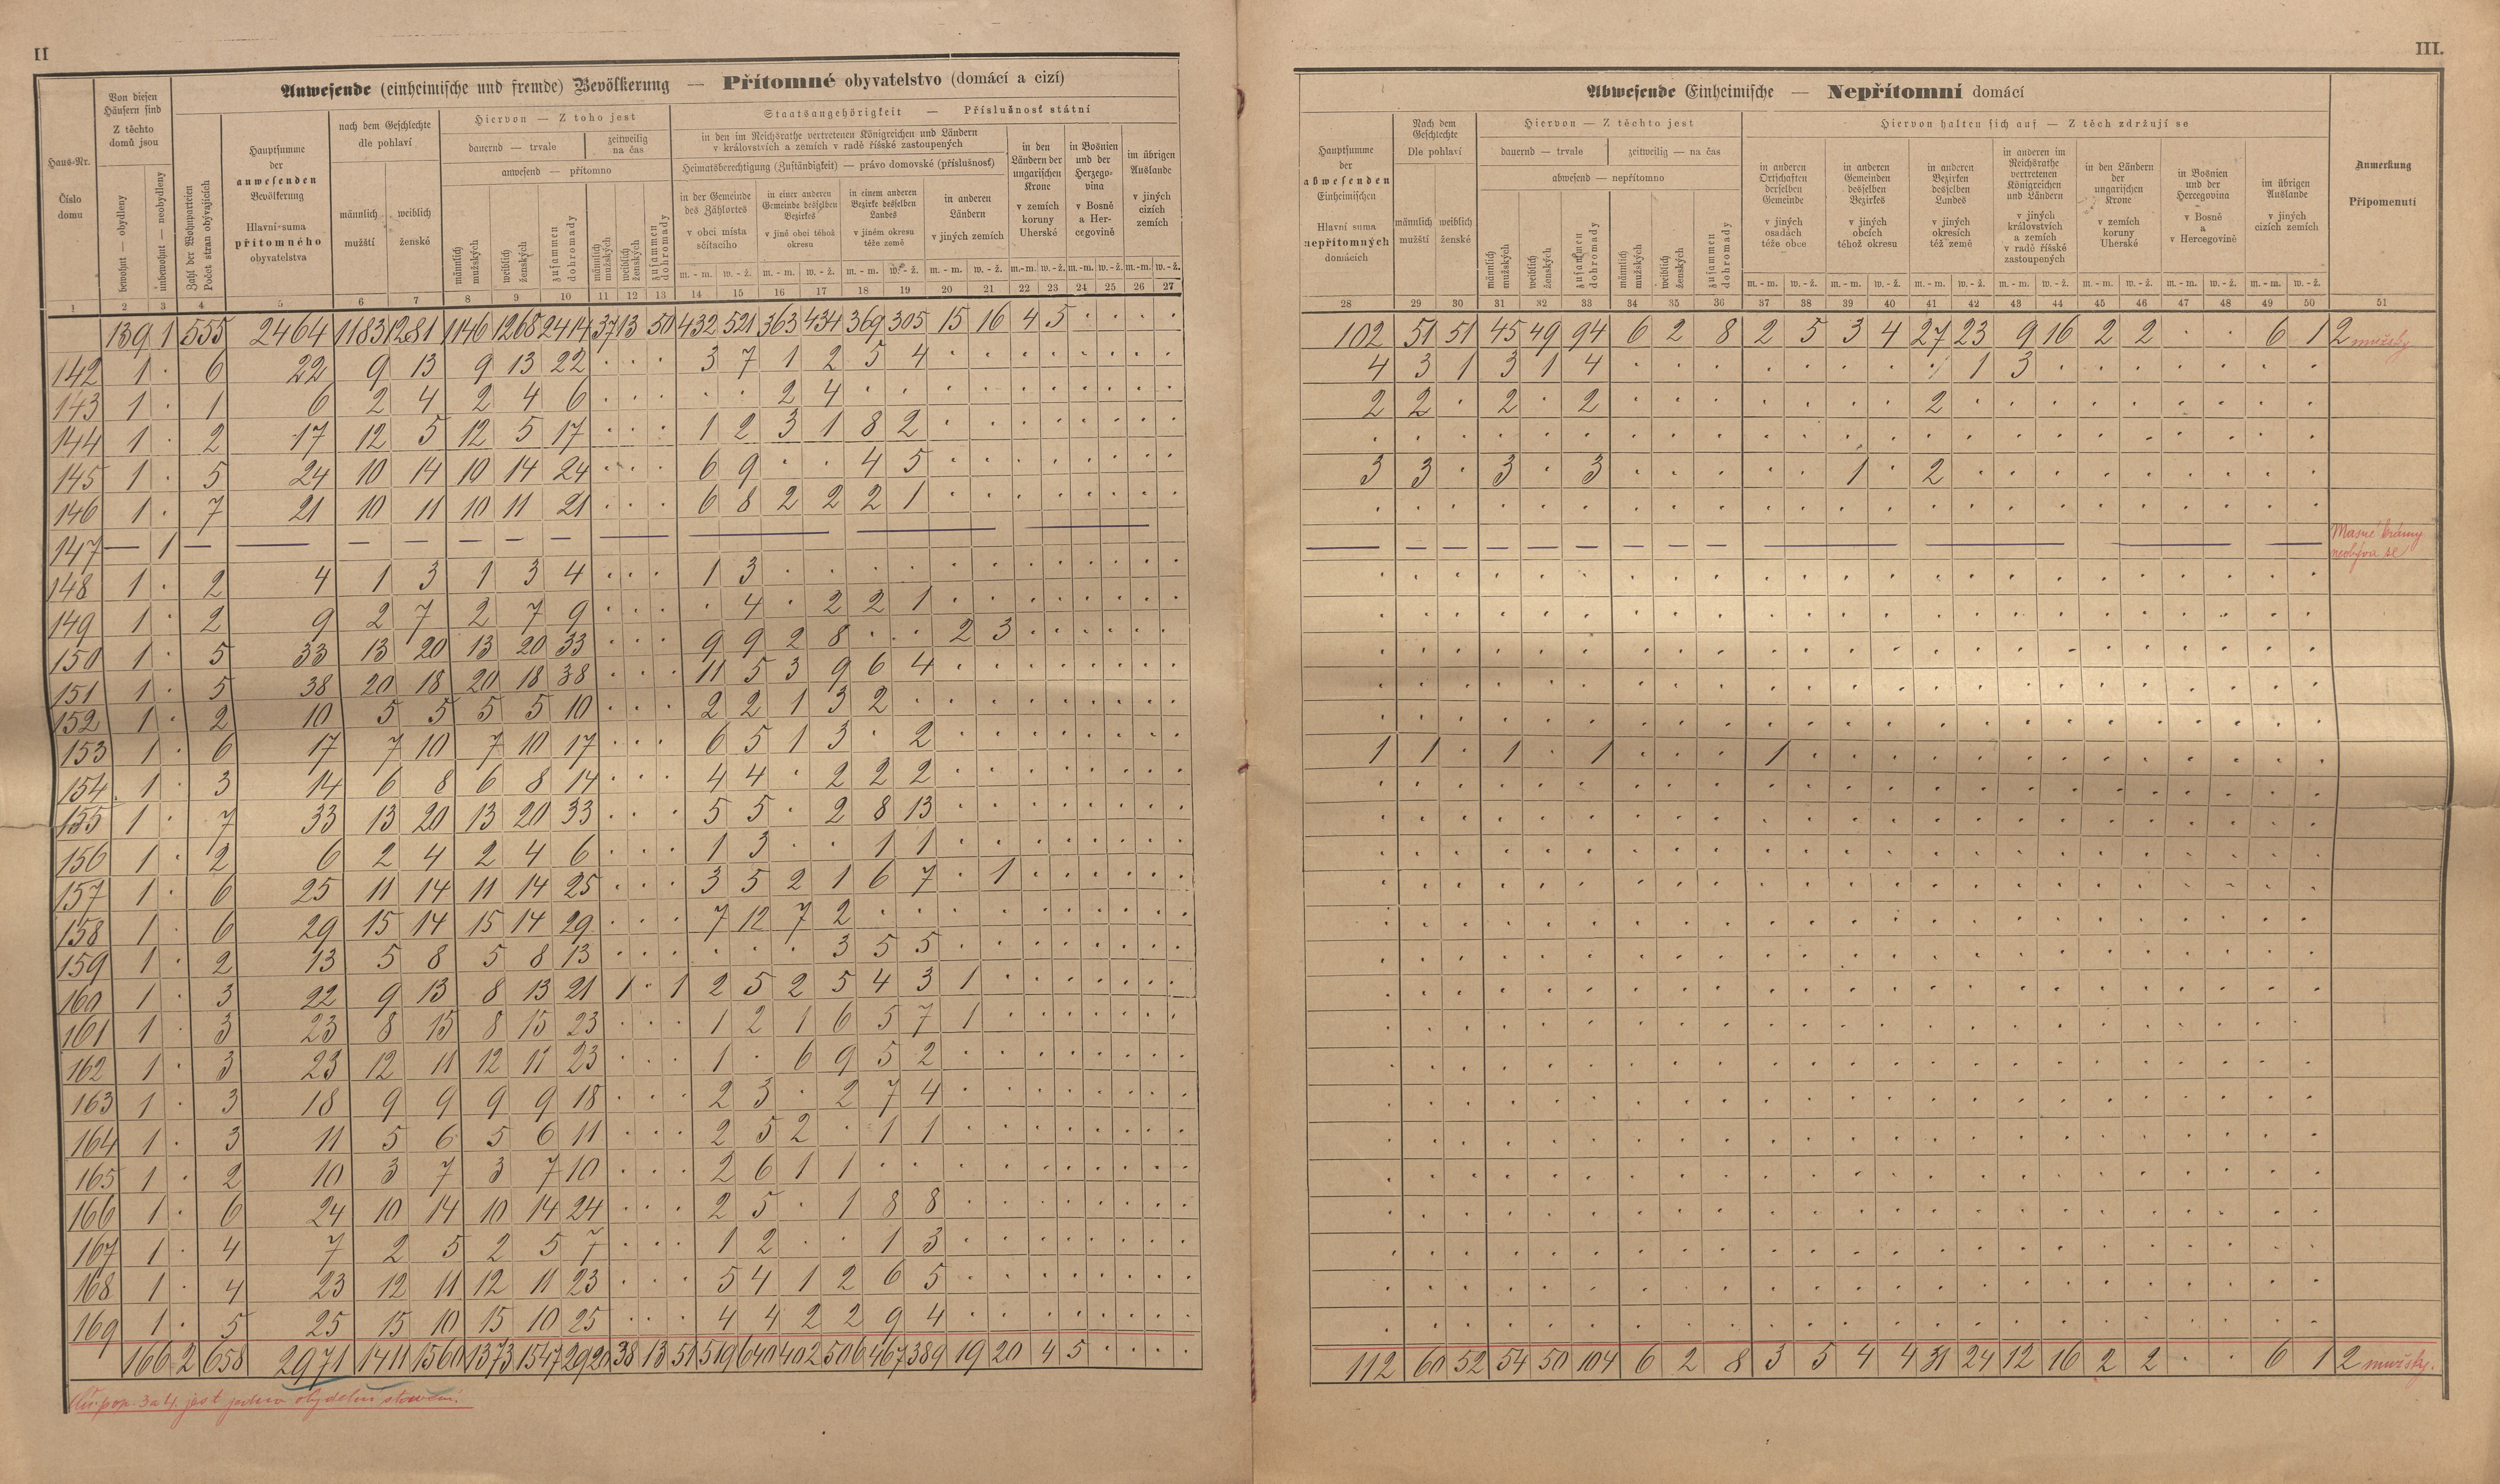 II
Anwesende (einheimische und fremde) Bevölkerung — Přítomné obyvatelstvo (domácí a cizí)
Haus-Nr.
Číslo domu
Von diesen Häusern sind
Z těchto domů jsou
bewohnt — obydleny
unbewohnt — neobydleny
Zahl der Wohnparteien
Počet stran obývajících
Hauptsumme der anwesenden Bevölkerung
Hlavní suma přítomného obyvatelstva
nach dem Geschlechte
dle pohlaví
männlich mužští
weiblich ženské
Hiervon — Z toho jest
dauernd — trvale
zeitweilig na čas
anwesend — přítomno
männlich mužských
weiblich ženských
zusammen dohromady
männlich mužských
weiblich ženských
zusammen dohromady
Staatsangehörigkeit — Příslušnosť státní
in den im Reichsrathe vertretenen Königreichen und Ländern
v královstvích a zemích v radě říšské zastoupených
Heimatsberechtigung (Zuständigkeit) — právo domovské (příslušnosť)
in der Gemeinde des Zählortes
v obci místa sčítacího
in einer anderen Gemeinde desselben Bezirkes
v jiné obci téhož okresu
in einem anderen Bezirke desselben Landes
v jiném okresu téže země
in anderen Ländern
v jiných zemích
in den Ländern der ungarischen Krone
v zemích koruny Uherské
in Bosnien und der Herzegovina
v Bosně a Hercegovině
im übrigen Auslande
v jiných cizích zemích
m. - m. w. - ž. m. - m. w. - ž. m. - m. w. - ž. m. - m. w. - ž. m.-m. w.-ž. m.-m. w.-ž. m.-m. w.-ž.
1 2 3 4 5 6 7 8 9 10 11 12 13 14 15 16 17 18 19 20 21 22 23 24 25 26 27
139 1 555 2464 1183 1281 1146 1268 2414 37 13 50 432 521 363 434 369 305 15 16 4 5 · · · ·
142 1 · 6 22 9 13 9 13 22 · · · 3 7 1 2 5 4 · · · · · · · ·
143 1 · 1 6 2 4 2 4 6 · · · · · 2 4 · · · · · · · · · ·
144 1 · 2 17 12 5 12 5 17 · · · 1 2 3 1 8 2 · · · · · · · ·
145 1 · 5 24 10 14 10 14 24 · · · 6 9 · · 4 5 · · · · · · · ·
146 1 · 7 21 10 11 10 11 21 · · · 6 8 2 2 2 1 · · · · · · · ·
147 — 1 — — — — — — — — — — —
148 1 · 2 4 1 3 1 3 4 · · · 1 3 · · · · · · · · · · · ·
149 1 · 2 9 2 7 2 7 9 · · · · 4 · 2 2 1 · · · · · · · ·
150 1 · 5 33 13 20 13 20 33 · · · 9 9 2 8 · · 2 3 · · · · · ·
151 1 · 5 38 20 18 20 18 38 · · · 11 5 3 9 6 4 · · · · · · · ·
152 1 · 2 10 5 5 5 5 10 · · · 2 2 1 3 2 · · · · · · · · ·
153 1 · 6 17 7 10 7 10 17 · · · 6 5 1 3 · 2 · · · · · · · ·
154 1 · 3 14 6 8 6 8 14 · · · 4 4 · 2 2 2 · · · · · · · ·
155 1 · 7 33 13 20 13 20 33 · · · 5 5 · 2 8 13 · · · · · · · ·
156 1 · 2 6 2 4 2 4 6 · · · 1 3 · · 1 1 · · · · · · · ·
157 1 · 6 25 11 14 11 14 25 · · · 3 5 2 1 6 7 · 1 · · · · · ·
158 1 · 6 29 15 14 15 14 29 · · · 7 12 7 2 · · · · · · · · · ·
159 1 · 2 13 5 8 5 8 13 · · · · · · 3 5 5 · · · · · · · ·
160 1 · 3 22 9 13 8 13 21 1 · 1 2 5 2 5 4 3 1 · · · · · · ·
161 1 · 3 23 8 15 8 15 23 · · · 1 2 1 6 5 7 1 · · · · · · ·
162 1 · 3 23 12 11 12 11 23 · · · 1 · 6 9 5 2 · · · · · · · ·
163 1 · 3 18 9 9 9 9 18 · · · 2 3 · 2 7 4 · · · · · · · ·
164 1 · 3 11 5 6 5 6 11 · · · 2 5 2 · 1 1 · · · · · · · ·
165 1 · 2 10 3 7 3 7 10 · · · 2 6 1 1 · · · · · · · · · ·
166 1 · 6 24 10 14 10 14 24 · · · 2 5 · 1 8 8 · · · · · · · ·
167 1 · 4 7 2 5 2 5 7 · · · 1 2 · · 1 3 · · · · · · · ·
168 1 · 4 23 12 11 12 11 23 · · · 5 4 1 2 6 5 · · · · · · · ·
169 1 · 5 25 15 10 15 10 25 · · · 4 4 2 2 9 4 · · · · · · · ·
166 2 658 2971 1411 1560 1373 1547 2920 38 13 51 519 640 402 506 467 389 19 20 4 5 · · · ·
pop. 3 a 4 jest jedno obydelní stavení.
III.
Abwesende Einheimische — Nepřítomní domácí
Hauptsumme der abwesenden Einheimischen
Hlavní suma nepřítomných domácích
Nach dem Geschlechte
Dle pohlaví
männlich mužští
weiblich ženské
Hiervon — Z těchto jest
dauernd — trvale
zeitweilig — na čas
abwesend — nepřítomno
männlich mužských
weiblich ženských
zusammen dohromady
männlich mužských
weiblich ženských
zusammen dohromady
Hiervon halten sich auf — Z těch zdržují se
in anderen Ortschaften derselben Gemeinde
v jiných osadách téže obce
in anderen Gemeinden desselben Bezirkes
v jiných obcích téhož okresu
in anderen Bezirken desselben Landes
v jiných okresích též země
in anderen im Reichsrathe vertretenen Königreichen und Ländern
v jiných královstvích a zemích v radě říšské zastoupených
in den Ländern der ungarischen Krone
v zemích koruny Uherské
in Bosnien und der Hercegovina
v Bosně a v Hercegovině
im übrigen Auslande
v jiných cizích zemích
Anmerkung
Připomenutí
m. - m. w. - ž. m. - m. w. - ž. m. - m. w. - ž. m. - m. w. - ž. m. - m. w. - ž. m. - m. w. - ž. m. - m. w. - ž.
28 29 30 31 32 33 34 35 36 37 38 39 40 41 42 43 44 45 46 47 48 49 50 51
102 51 51 45 49 94 6 2 8 2 5 3 4 27 23 9 16 2 2 · · 6 1 2 mužský
4 3 1 3 1 4 · · · · · · · · 1 3 · · · · · · ·
2 2 · 2 · 2 · · · · · · · 2 · · · · · · · · ·
· · · · · · · · · · · · · · · · · · · · · · ·
3 3 · 3 · 3 · · · · · 1 · 2 · · · · · · · · ·
· · · · · · · · · · · · · · · · · · · · · · ·
— — — — — — — — — — — — Masné krámy
neobývá se
1 1 · 1 · 1 · · · 1 · · · · · · · · · · · · ·
112 60 52 54 50 104 6 2 8 3 5 4 4 31 24 12 16 2 2 · · 6 1 2 mužský.